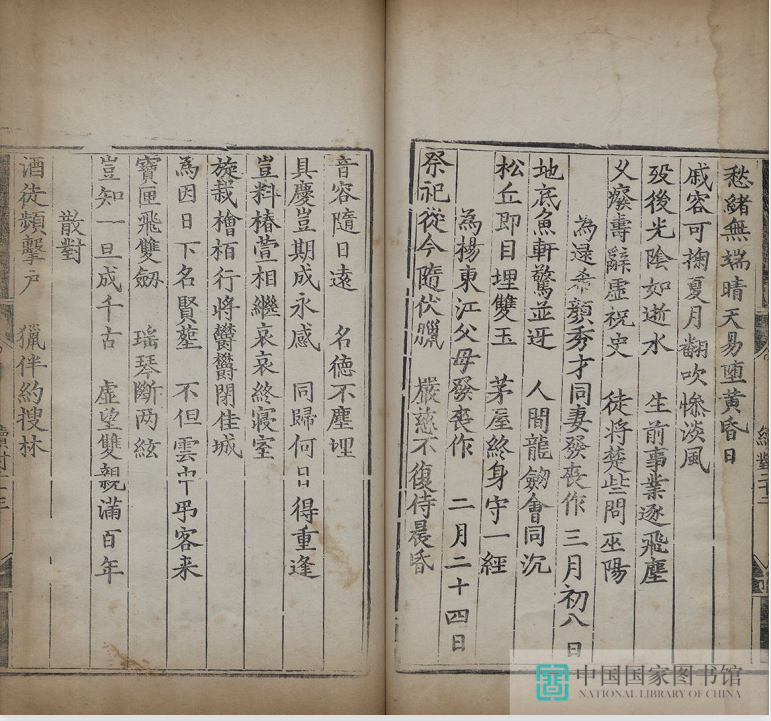 愁緒無端晴天易墮黃昏日
戚容可掬夏月翻吹慘淡風
歿後光陰如逝水　生前事業逐飛塵
乂癈壽辭虛祝史　徒將楚些問巫陽
為逯希顏秀才同妻發喪作 三月初八日
地底魚軒驚並迓　人間龍劒會同沉
松丘即目埋雙玉　茅屋終身守一經
為楊東江父母發喪作　二月二十四日
祭祀從今隨伏臘　嚴慈不復侍晨昏
音容隨日遠　名德不塵埋
具慶豈期成永感　同歸何日得重逢
豈料椿萱相繼哀哀終寢室
旋栽檜栢行將鬱鬱閉佳城
為因日下名賢塟　不但雲中弔客来
寶匣飛雙劒　瑤琴斷两絃
豈知一旦成千古　虛望雙親滿百年
散對
酒徒頻擊戶　獵伴約搜林
中国国家图书馆
NATIONAL LIBRARY OF CHINA